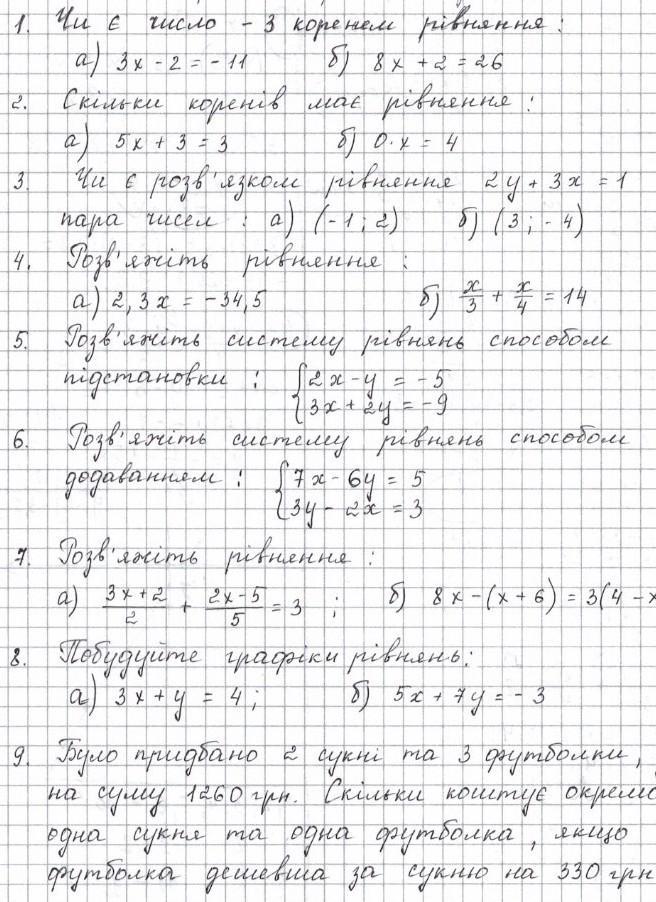 1. Чи є число - 3 коренем рівняння:
а) 3x - 2 = - 11 б) 8x + 2 = 26
2. Скільки коренів має рівняння:
а) 5x + 3 = 3 б) 0·x = 4
3. Чи є розв'язком рівняння 2y + 3x = 1
пара чисел: а) (-1; 2) б) (3; - 4)
4. Розв'яжіть рівняння:
а) 2,3x = -34,5 б) x/3 + x/4 = 14
5. Розв'яжіть систему рівнянь способом
підстановки: { 2x - y = - 5
3x + 2y = - 9
6. Розв'яжіть систему рівнянь способом
додаванням: { 7x - 6y = 5
3y - 2x = 3
7. Розв'яжіть рівняння:
а) (3x + 2)/2 + (2x - 5)/5 = 3; б) 8x - (x + 6) = 3(4 - x
8. Побудуйте графіки рівнянь:
а) 3x + y = 4; б) 5x + 7y = - 3
9. Було придбано 2 сукні та 3 футболки,
на суму 1260 грн. Скільки коштує окремо
одна сукня та одна футболка, якщо
футболка дешевша за сукню на 330 грн